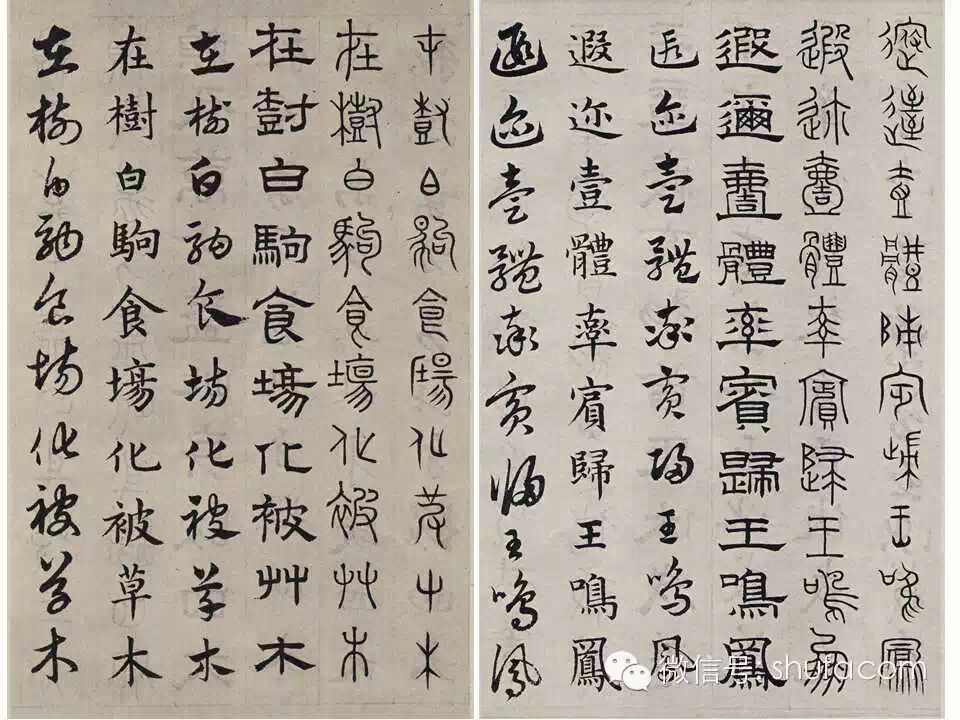 遐邇壹體率賓歸王鳴鳳
遐迩壹體率賓歸王鳴鳳
遐邇壹體率賓歸王鳴鳳
遐迩壹體率賓歸王鳴鳳
遐迩壹體率賓歸王鳴鳳
遐迩壹體率賓歸王鳴鳳
在樹白駒食場化被草木
在樹白駒食場化被艸木
在樹白駒食場化被艸木
在樹白駒食場化被草木
在樹白駒食場化被草木
在樹白駒食場化被草木
微信号: shufacom